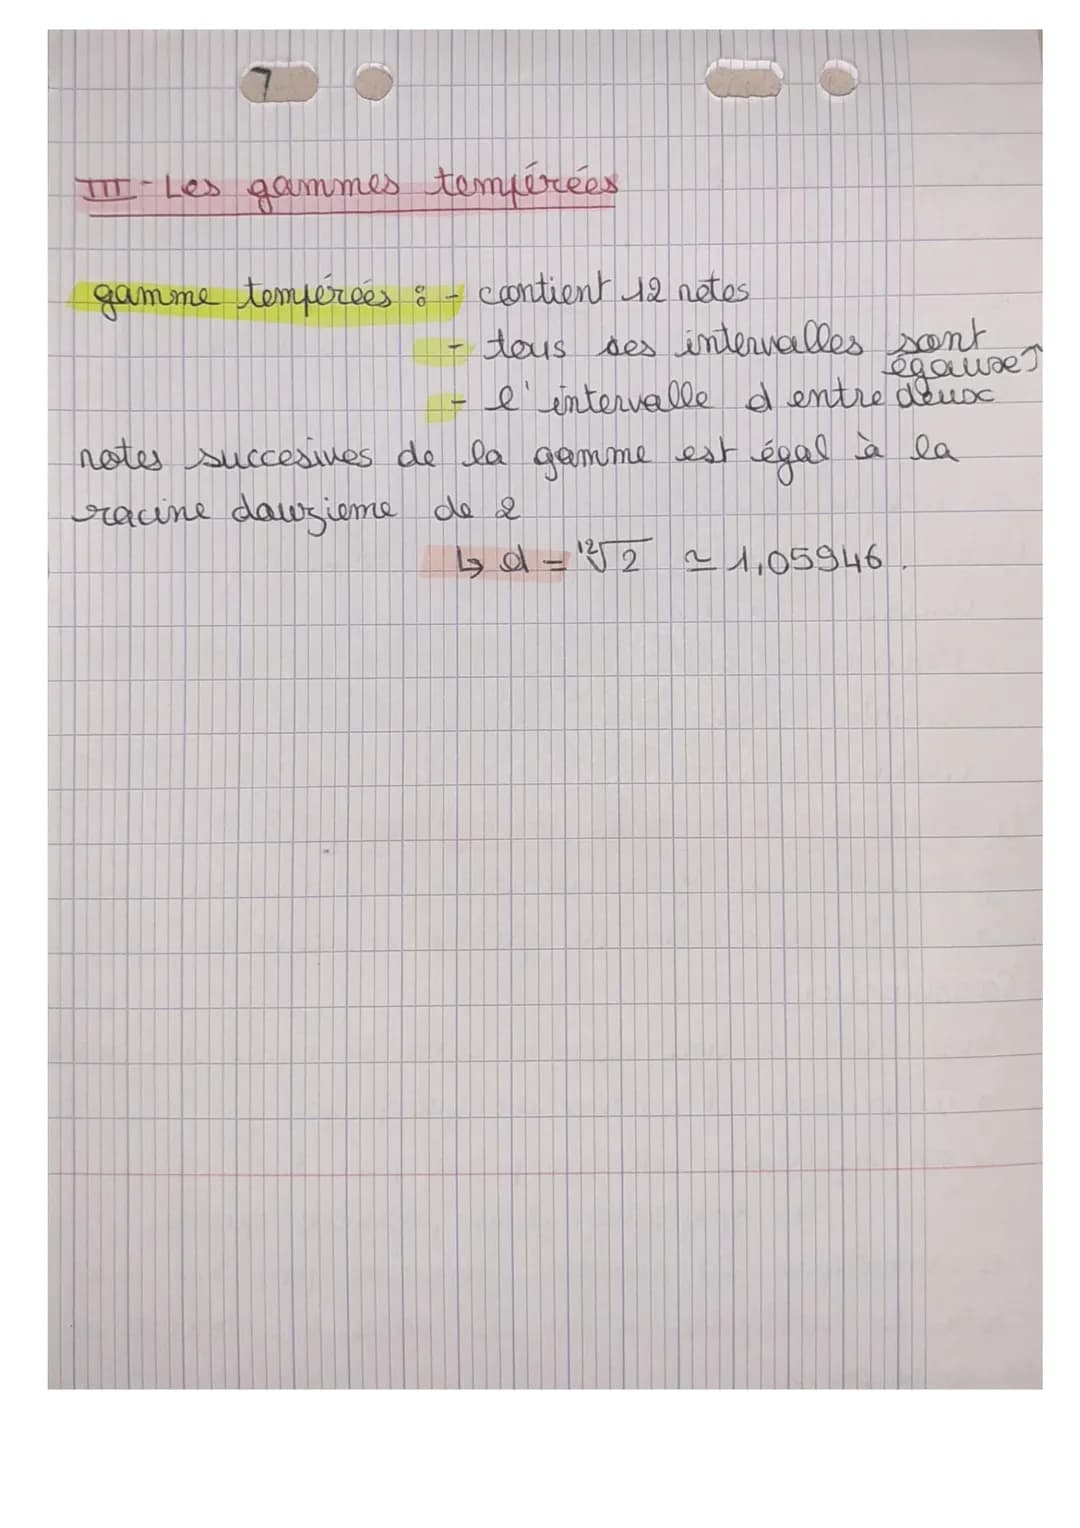 7
III - Les gammes tempérées
gamme temperées : - contient 12 notes
- tous ses intervalles sont
égause
- l'intervalle d entre deux
notes succesives de la gamme est égal à la
racine douzieme de 2
↳ d = ¹²√2 ≃ 1,05946.